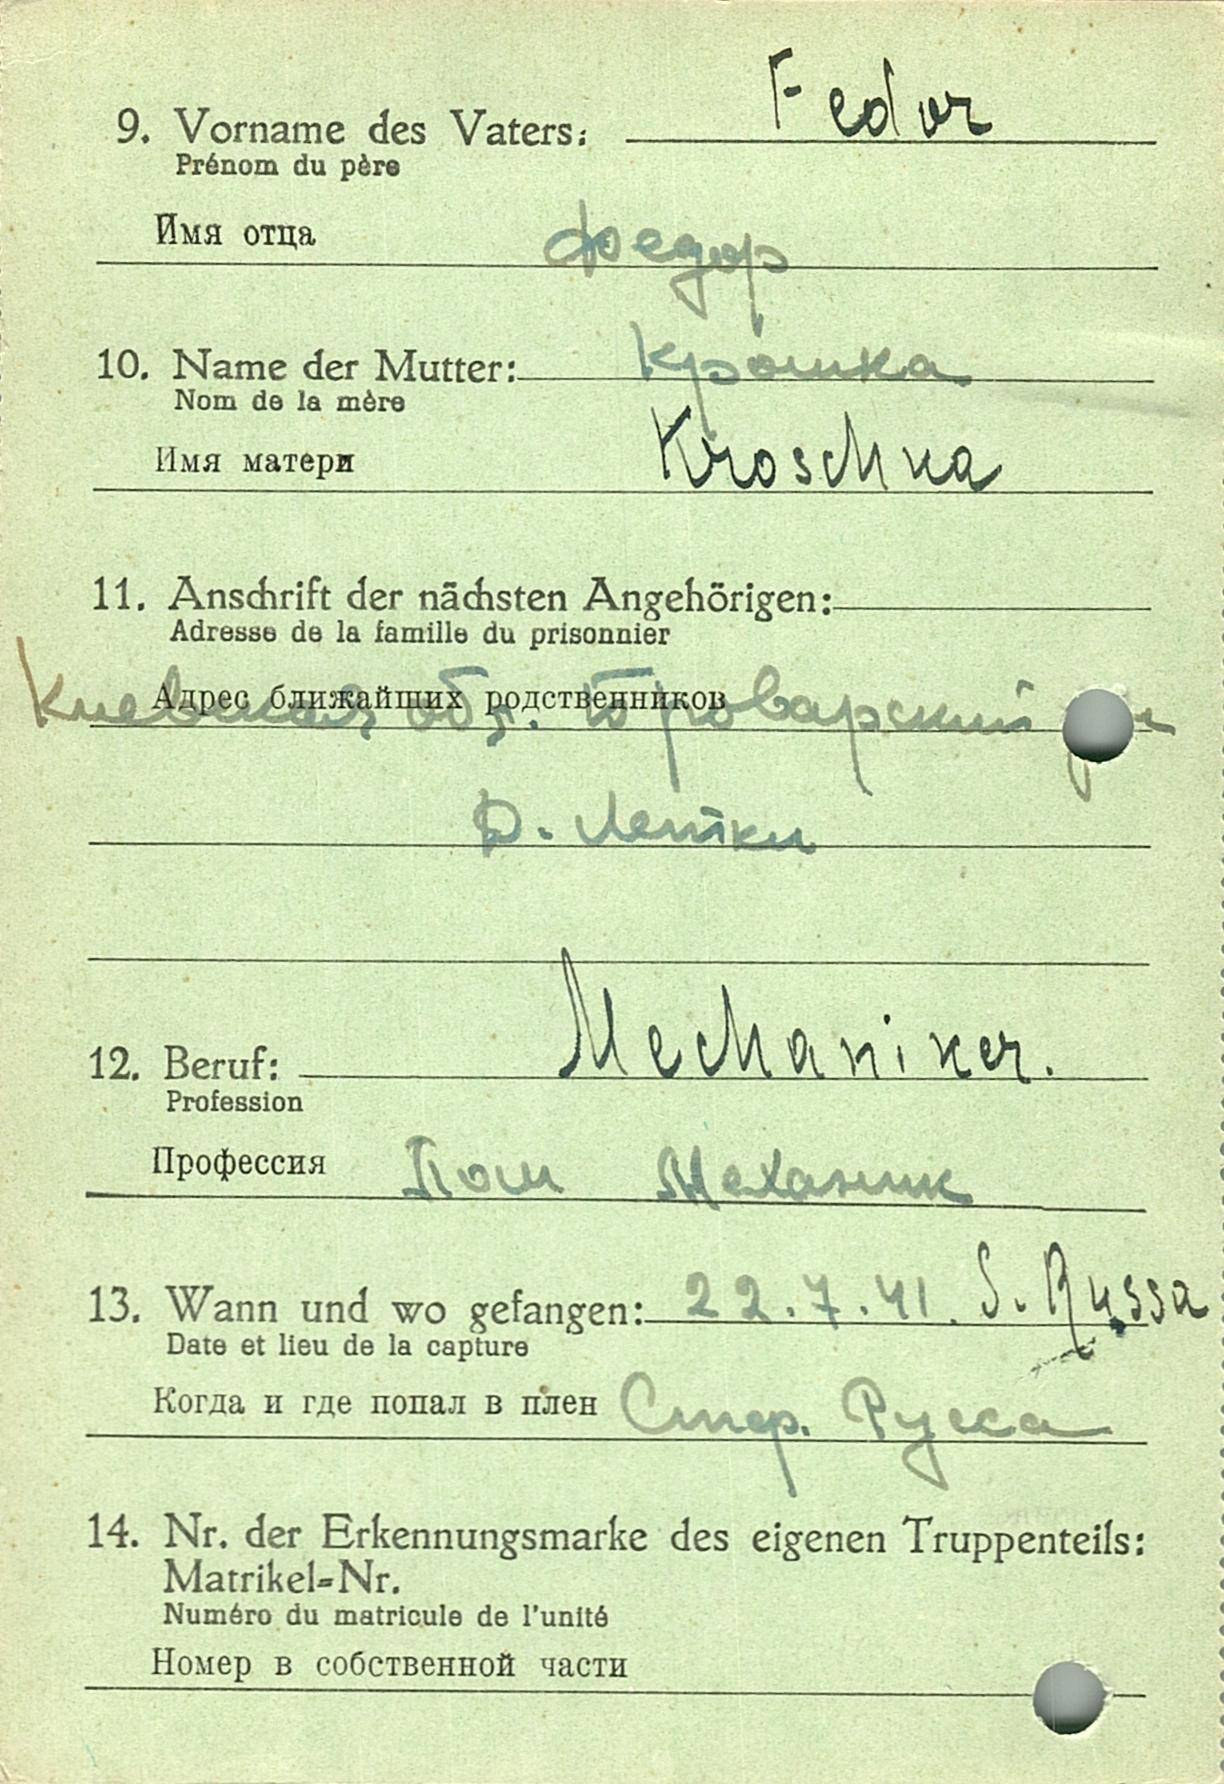 9. Vorname des Vaters: Fedor
Prénom du père
Имя отца Федор
10. Name der Mutter: Крошка
Nom de la mère
Имя матери Kroschka
11. Anschrift der nächsten Angehörigen:
Adresse de la famille du prisonnier
Адрес ближайших родственников
Киевская обл. Броварский
д. Летки
12. Beruf: Mechaniker.
Profession
Профессия Пом Механик
13. Wann und wo gefangen: 22.7.41. S. Russa
Date et lieu de la capture
Когда и где попал в плен Стар. Русса
14. Nr. der Erkennungsmarke des eigenen Truppenteils:
Matrikel-Nr.
Numéro du matricule de l'unité
Номер в собственной части